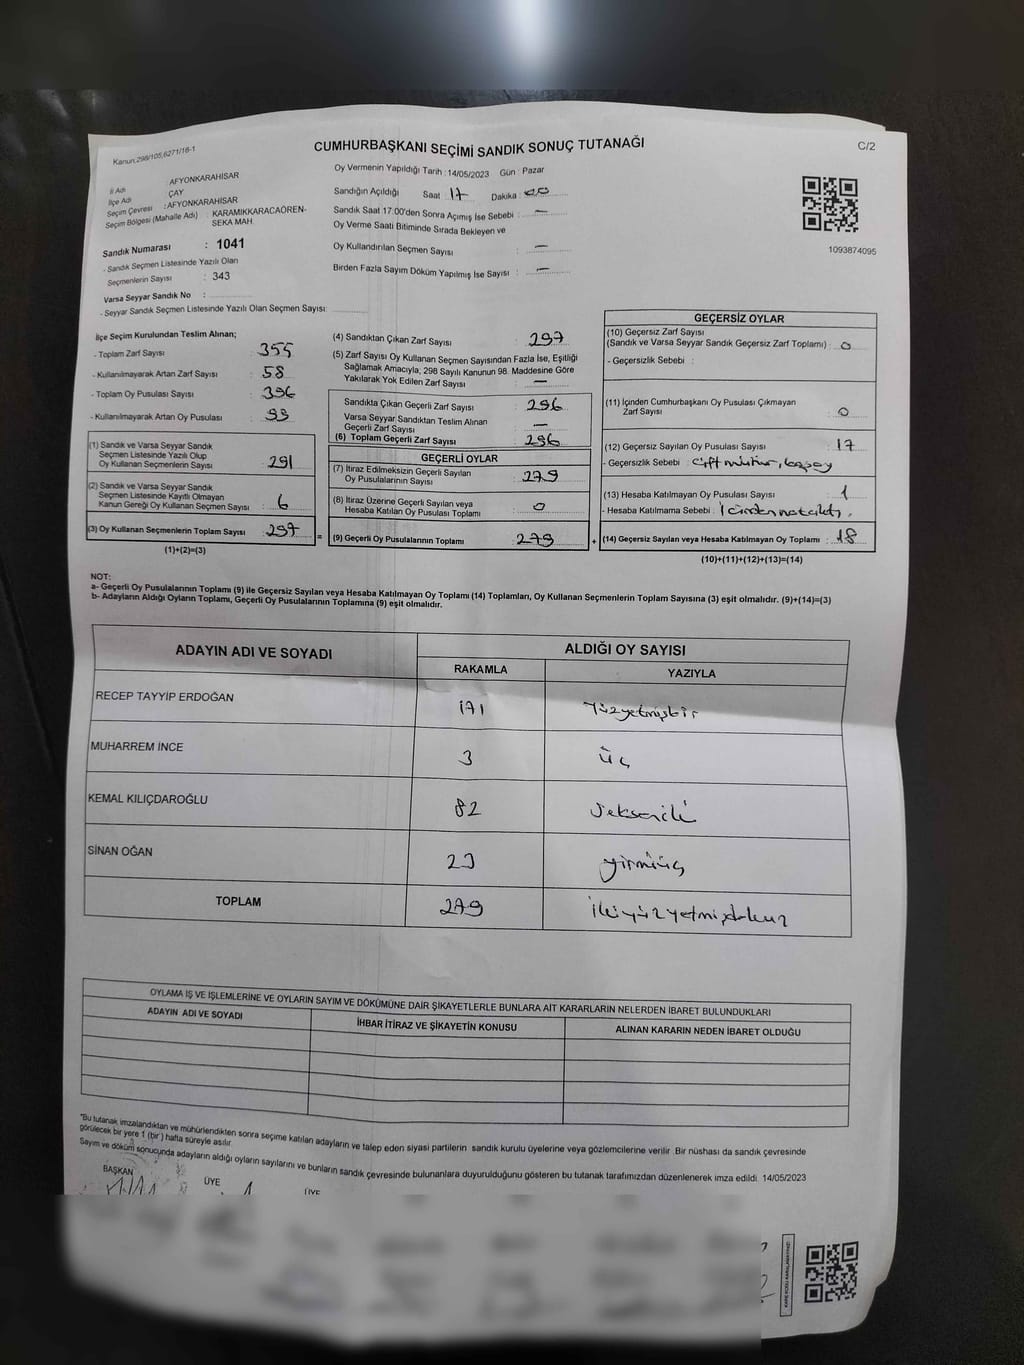 Kanun,298/105,6271/16-1
CUMHURBAŞKANI SEÇİMİ SANDIK SONUÇ TUTANAĞI
C/2
İl Adı : AFYONKARAHİSAR
İlçe Adı ÇAY
Seçim Çevresi : AFYONKARAHİSAR
Seçim Bölgesi (Mahalle Adı) : KARAMIKKARACAÖREN-
SEKA MAH.
Sandık Numarası : 1041
- Sandık Seçmen Listesinde Yazılı Olan
Seçmenlerin Sayısı : 343
Varsa Seyyar Sandık No :
- Seyyar Sandık Seçmen Listesinde Yazılı Olan Seçmen Sayısı:
Oy Vermenin Yapıldığı Tarih : 14/05/2023 Gün : Pazar
Sandığın Açıldığı Saat 17 Dakika 00
Sandık Saat 17:00'den Sonra Açımış İse Sebebi : —
Oy Verme Saati Bitiminde Sırada Bekleyen ve
Oy Kullandırılan Seçmen Sayısı : —
Birden Fazla Sayım Döküm Yapılmış İse Sayısı : —
1093874095
İlçe Seçim Kurulundan Teslim Alınan;
- Toplam Zarf Sayısı : 355
- Kullanılmayarak Artan Zarf Sayısı : 58
- Toplam Oy Pusulası Sayısı : 396
- Kullanılmayarak Artan Oy Pusulası : 99
(1) Sandık ve Varsa Seyyar Sandık
Seçmen Listesinde Yazılı Olup
Oy Kullanan Seçmenlerin Sayısı : 291
(2) Sandık ve Varsa Seyyar Sandık
Seçmen Listesinde Kayıtlı Olmayan
Kanun Gereği Oy Kullanan Seçmen Sayısı : 6
(3) Oy Kullanan Seçmenlerin Toplam Sayısı : 297 =
(1)+(2)=(3)
(4) Sandıktan Çıkan Zarf Sayısı : 297
(5) Zarf Sayısı Oy Kullanan Seçmen Sayısından Fazla İse, Eşitliği
Sağlamak Amacıyla; 298 Sayılı Kanunun 98. Maddesine Göre
Yakılarak Yok Edilen Zarf Sayısı : —
Sandıkta Çıkan Geçerli Zarf Sayısı : 296
Varsa Seyyar Sandıktan Teslim Alınan
Geçerli Zarf Sayısı : —
(6) Toplam Geçerli Zarf Sayısı : 296
GEÇERLİ OYLAR
(7) İtiraz Edilmeksizin Geçerli Sayılan
Oy Pusulalarının Sayısı : 279
(8) İtiraz Üzerine Geçerli Sayılan veya
Hesaba Katılan Oy Pusulası Toplamı : 0
(9) Geçerli Oy Pusulalarının Toplamı : 279 +
GEÇERSİZ OYLAR
(10) Geçersiz Zarf Sayısı
(Sandık ve Varsa Seyyar Sandık Geçersiz Zarf Toplamı) : 0
- Geçersizlik Sebebi :
(11) İçinden Cumhurbaşkanı Oy Pusulası Çıkmayan
Zarf Sayısı : 0
(12) Geçersiz Sayılan Oy Pusulası Sayısı : 17
- Geçersizlik Sebebi : Çift mühür,
(13) Hesaba Katılmayan Oy Pusulası Sayısı : 1
- Hesaba Katılmama Sebebi :
(14) Geçersiz Sayılan veya Hesaba Katılmayan Oy Toplamı : 18
(10)+(11)+(12)+(13)=(14)
NOT:
a- Geçerli Oy Pusulalarının Toplamı (9) ile Geçersiz Sayılan veya Hesaba Katılmayan Oy Toplamı (14) Toplamları, Oy Kullanan Seçmenlerin Toplam Sayısına (3) eşit olmalıdır. (9)+(14)=(3)
b- Adayların Aldığı Oyların Toplamı, Geçerli Oy Pusulalarının Toplamına (9) eşit olmalıdır.
ADAYIN ADI VE SOYADI ALDIĞI OY SAYISI
RAKAMLA YAZIYLA
RECEP TAYYİP ERDOĞAN 171 Yüzyetmişbir
MUHARREM İNCE 3 üç
KEMAL KILIÇDAROĞLU 82 Sekseniki
SİNAN OĞAN 23 yirmiüç
TOPLAM 279 ikiyüzyetmişdokuz
OYLAMA İŞ VE İŞLEMLERİNE VE OYLARIN SAYIM VE DÖKÜMÜNE DAİR ŞİKAYETLERLE BUNLARA AİT KARARLARIN NELERDEN İBARET BULUNDUKLARI
ADAYIN ADI VE SOYADI İHBAR İTİRAZ VE ŞİKAYETİN KONUSU ALINAN KARARIN NEDEN İBARET OLDUĞU
*Bu tutanak imzalandıktan ve mühürlendikten sonra seçime katılan adayların ve talep eden siyasi partilerin sandık kurulu üyelerine veya gözlemcilerine verilir. Bir nüshası da sandık çevresinde
görülecek bir yere 1 (bir) hafta süreyle asılır.
Sayım ve döküm sonucunda adayların aldığı oyların sayılarını ve bunların sandık çevresinde bulunanlara duyurulduğunu gösteren bu tutanak tarafımızdan düzenlenerek imza edildi. 14/05/2023
BAŞKAN ÜYE ÜYE